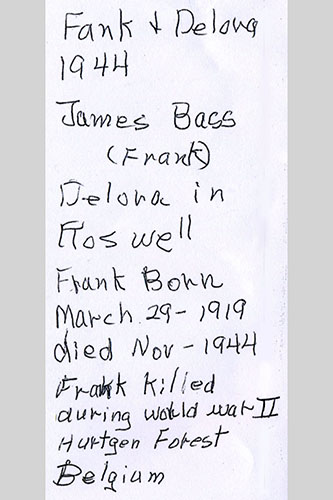 Fank + Delora
1944
James Bass
(Frank)
Delora in
Roswell
Frank Born
March 29- 1919
died Nov - 1944
Frank Killed
during world war II
Hurtgen Forest
Belgium